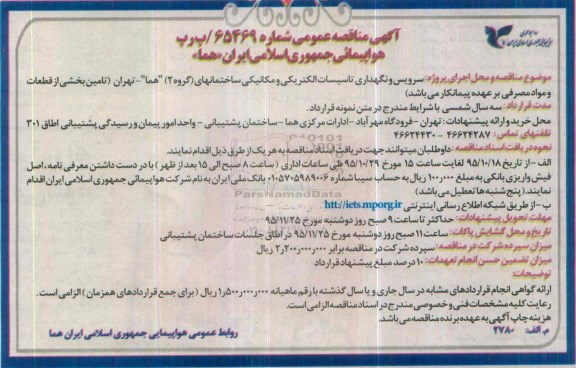 آگهی مناقصه عمومی شماره ۶۵۴۶۹/ب ر ب
هواپیمائی جمهوری اسلامی ایران «هما»
موضوع مناقصه و محل اجرای پروژه: سرویس و نگهداری تاسیسات الکتریکی و مکانیکی ساختمانهای (گروه ۲) "هما" - تهران (تامین بخشی از قطعات
و مواد مصرفی بر عهده پیمانکار می باشد)
مدت قرارداد: سه سال شمسی با شرایط مندرج در متن نمونه قرارداد.
محل خرید و ارائه پیشنهادات: تهران - فرودگاه مهر آباد - ادارات مرکزی هما - ساختمان پشتیبانی - واحد امور پیمان و رسیدگی پشتیبانی اطاق ۳۰۱
تلفنهای تماس: ۴۶۶۲۴۲۸۷ - ۴۶۶۲۴۴۳۰
نحوه دریافت اسناد مناقصه: داوطلبان میتوانند جهت دریافت اسناد مناقصه به هر یک از طرق ذیل اقدام نمایند.
الف - از تاریخ ۹۵/۱۰/۱۸ لغایت ساعت ۱۵ مورخ ۹۵/۱۰/۲۹ طی ساعات اداری (ساعت ۸ صبح الی ۱۵ بعد از ظهر) با در دست داشتن معرفی نامه، اصل
فیش واریزی بانکی به مبلغ ۱۰۰,۰۰۰ ریال به حساب سیبا شماره ۰۱۰۵۷۰۵۹۸۹۰۰۶ بانک ملی ایران به نام شرکت هواپیمائی جمهوری اسلامی ایران اقدام
نمایند. (پنج شنبه ها تعطیل می باشد)
ب - از طریق شبکه اطلاع رسانی اینترنتی http://iets.mporg.ir
مهلت تحویل پیشنهادات: حداکثر تا ساعت ۹ صبح روز دوشنبه مورخ ۹۵/۱۱/۲۵
تاریخ و محل گشایش پاکات: ساعت ۱۱ صبح روز دوشنبه مورخ ۹۵/۱۱/۲۵ در اطاق جلسات ساختمان پشتیبانی
میزان سپرده شرکت در مناقصه: سپرده شرکت در مناقصه برابر ۲,۲۰۰,۰۰۰,۰۰۰ ریال
میزان تضمین حسن انجام تعهدات: ۱۰ درصد مبلغ پیشنهاد قرارداد
توضیحات:
ارائه گواهی انجام قراردادهای مشابه در سال جاری و یا سال گذشته با رقم ماهیانه ۱,۵۰۰,۰۰۰,۰۰۰ ریال (برای جمع قراردادهای همزمان) الزامی است.
رعایت کلیه مشخصات فنی و خصوصی مندرج در اسناد مناقصه الزامی است.
هزینه چاپ آگهی به عهده برنده مناقصه می باشد.
م الف: ۲۷۸۰
روابط عمومی هواپیمایی جمهوری اسلامی ایران هما
ParsNamadData